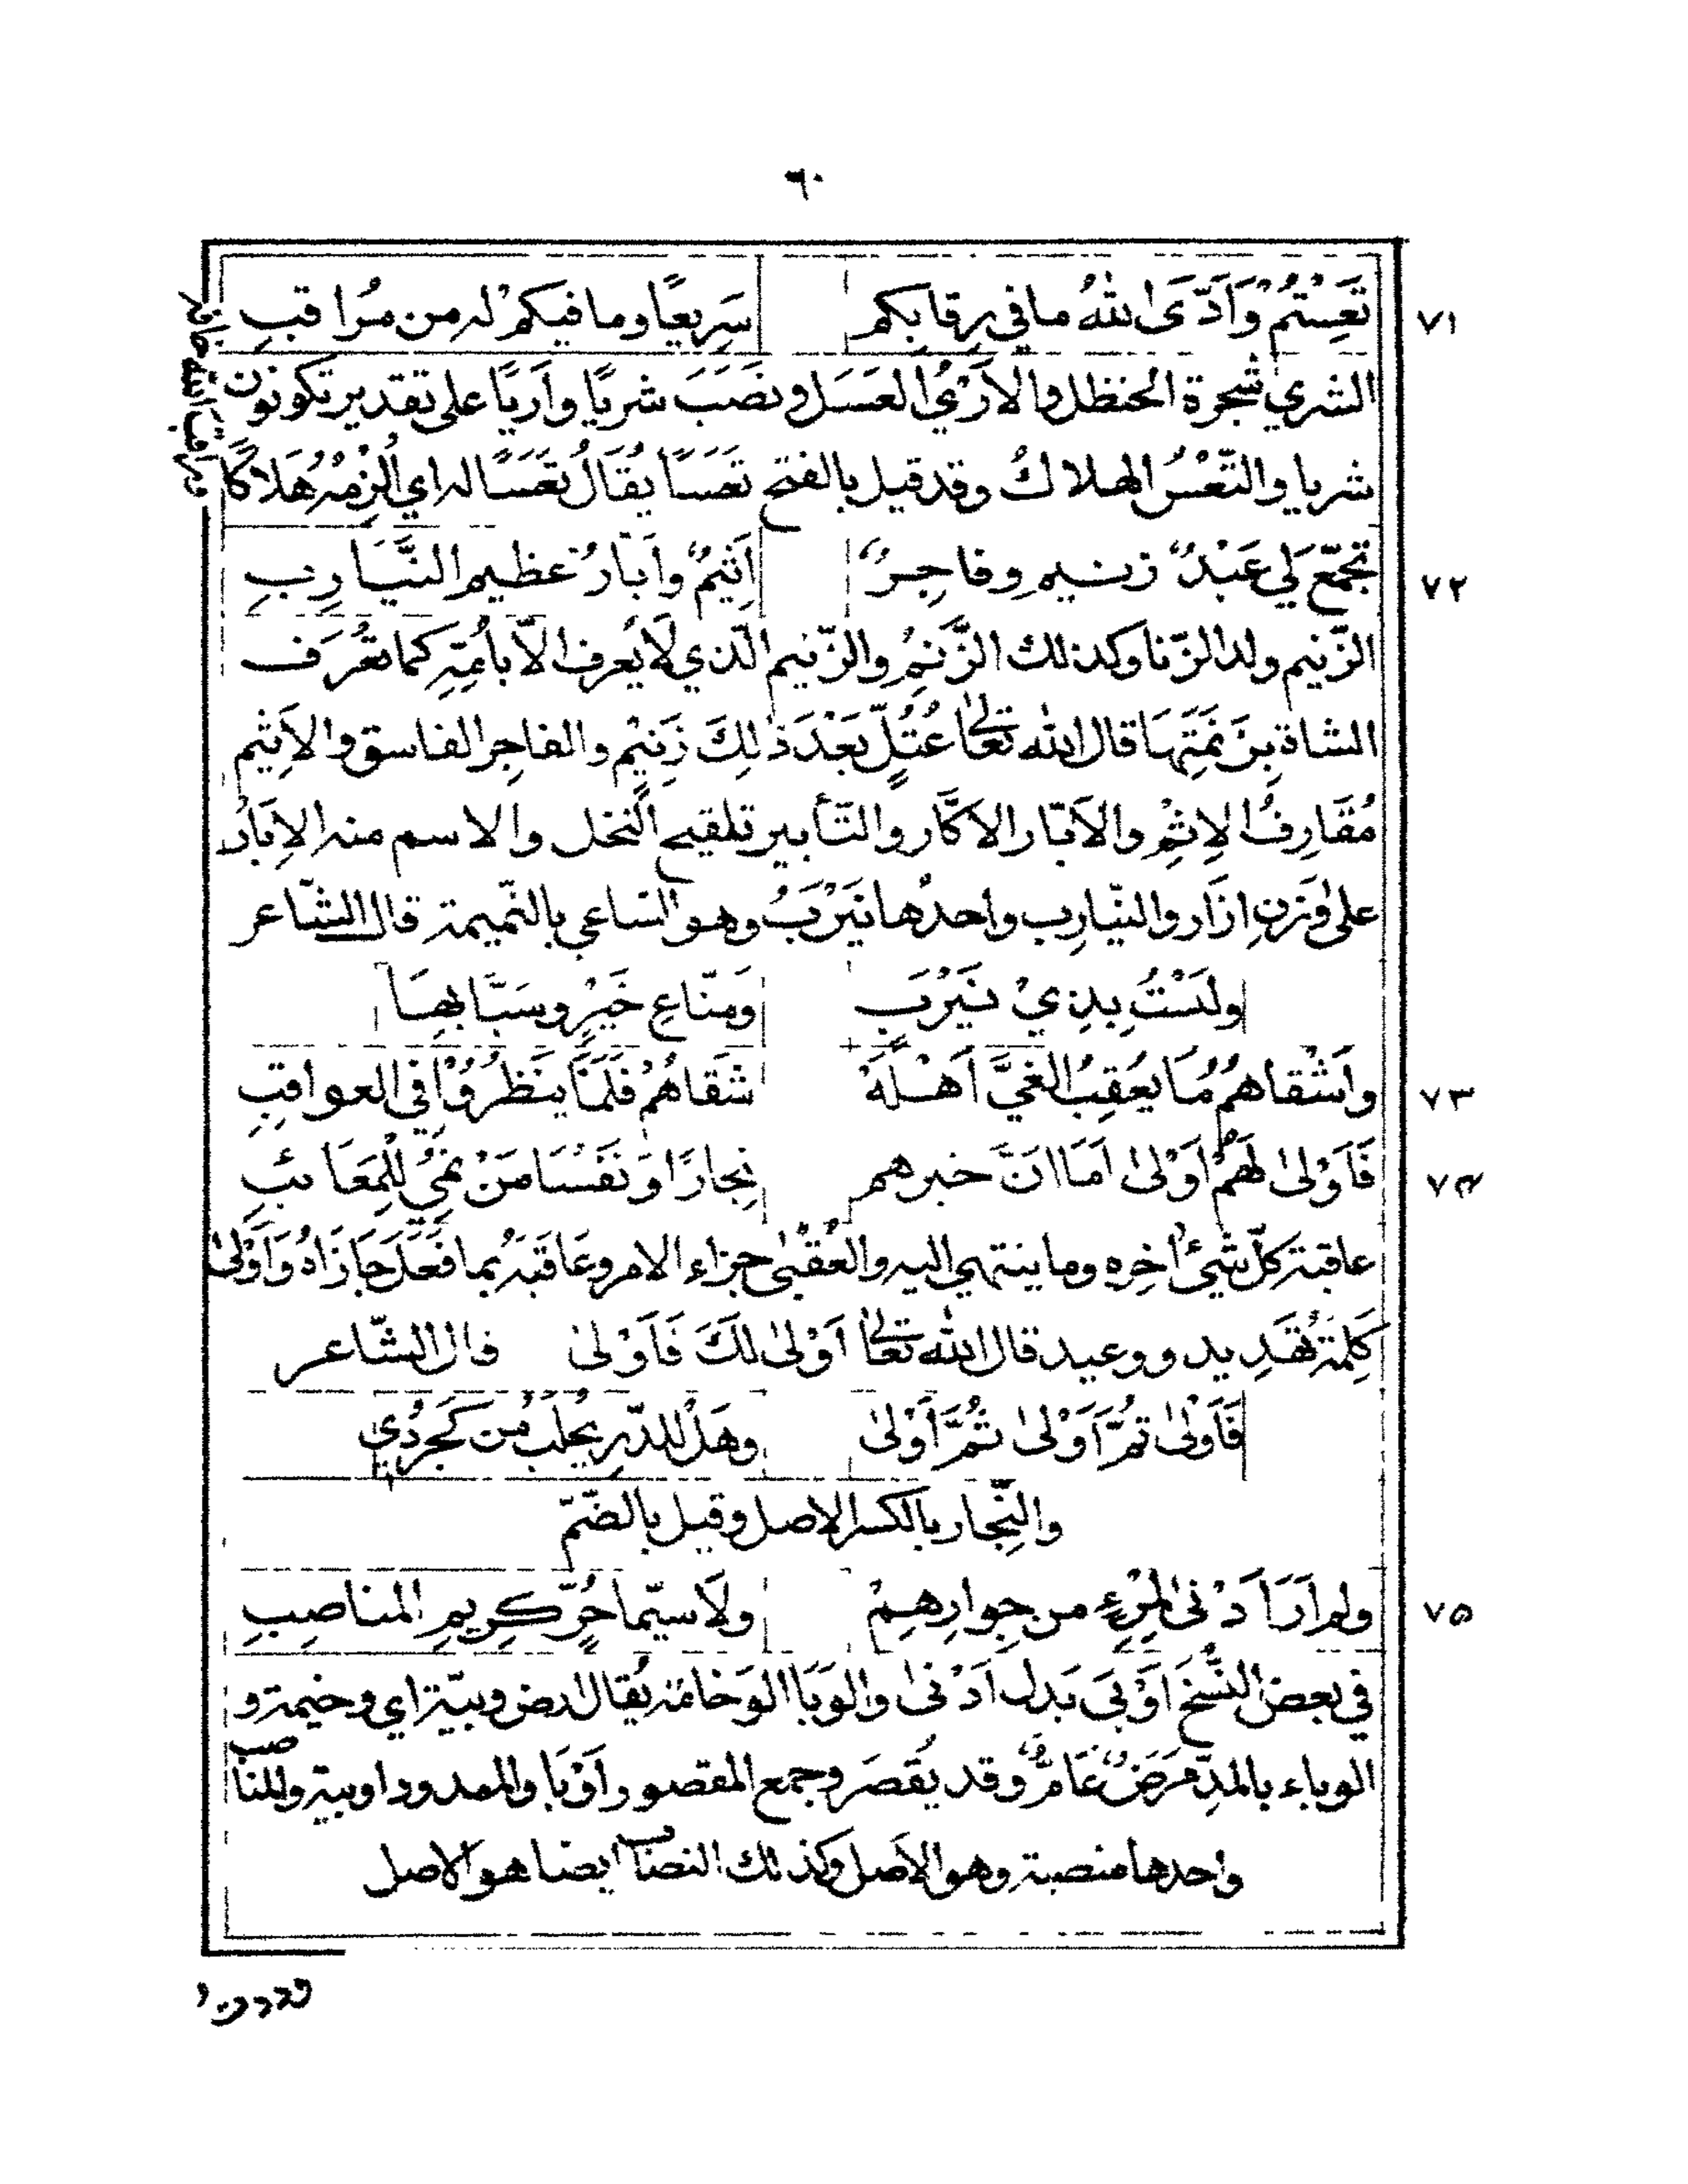 ٦٠
٧١ تَعِسْتُمْ وَاَدّى اللهُ مافي رِقابِكم سَرِيعًا وما فيكمْ له من مُراقبِ
الشري شجرة الحنظل والاَرْيُ العَسَل ونصَبَ شريًا واَريًا على تقدير تكونون
شريا والتَّعْسُ الهلاكُ وقد قيل بالفتح تَعَسَاً يُقَالُ تَعَسًا له اي اُلْزِمْهُ هَلَاكًا
٧٢ تَجَمّعَ لي عَبْدٌ زنيم وفاجِرٌ اَثِيمٌ واَبّارُ عظيم النَّيَارِبِ
الزّنيم ولد الزّنا وكذلك الزَّنِمُ والزّنيم الّذي لَا يُعرف الّا بأمِّهِ كما تُعْرَف
الشاة بِزَنَمَتِهَا قال الله تعالى عُتُلٍّ بَعْدَ ذٰلِكَ زَنِيْمٍ والفاجِر الفاسق والاَثِيم
مُقَارِفُ الاِثْمِ والاَبّار الاكَّار والتّأبير تلقيح النّخل والاسم منه الاِبَارُ
على وَزنِ ازَار والنّيَارِب واحدُها نَيْرَبُ وهو السّاعي بالنّميمة قال الشّاعر
ولَسْتُ بِذِيْ نَيْرَبٍ وَمنّاعِ خَيْرٍ وسَبّابِهَا
٧٣ واَشْقاهُمُ مَا يُعقِبُ الغَيَّ اَهْلَهُ شَقَاهُمْ فَلَمَّا يَنظُرُوْا في العواقبِ
٧٤ فَاَوْلىٰ لَهُمْ اَوْلىٰ اَمَا اَنَّ خبرهم نِجارًا وَنَفْسًا مَنْ نُمي لِلْمَعَائبِ
عاقبة كلّ شيئ اٰخِره وما ينتهي اليه والعُقْبىٰ جزاء الامر وعَاقَبَهُ بما فَعَلَ جَازَاهُ وَاَوْلىٰ
كَلِمَةُ تَهْدِيد ووعيد قال الله تعالى اَوْلىٰ لَكَ فَاَوْلىٰ قال الشّاعر
فَاَوْلىٰ ثُمَّ اَوْلىٰ ثُمَّ اَوْلىٰ وهَلْ للدّرِ يُحلَبُ مِن
والنِّجار بالكسر الاصل وقيل بالضّمّ
٧٥ ولم اَرَ اَدْنىٰ لِمْرِءٍ من جِوارِهِمْ ولَا سيّما حُرٍّ كريمِ المناصِبِ
في بعض النُّسَخ اَوْبَى بَدل اَدْنىٰ والوَبَا الوَخامَة يُقال ارض وبيّة اي وخيمة و
الوباء بالمدّ مَرَضٌ عَامٌّ وقد يُقصَر وجمع المقصور اَوْبَا والممدود اوبية والمناصب
واحدها منصبة وهو الاَصل وكذلك النصاب ايضا هو الاصل